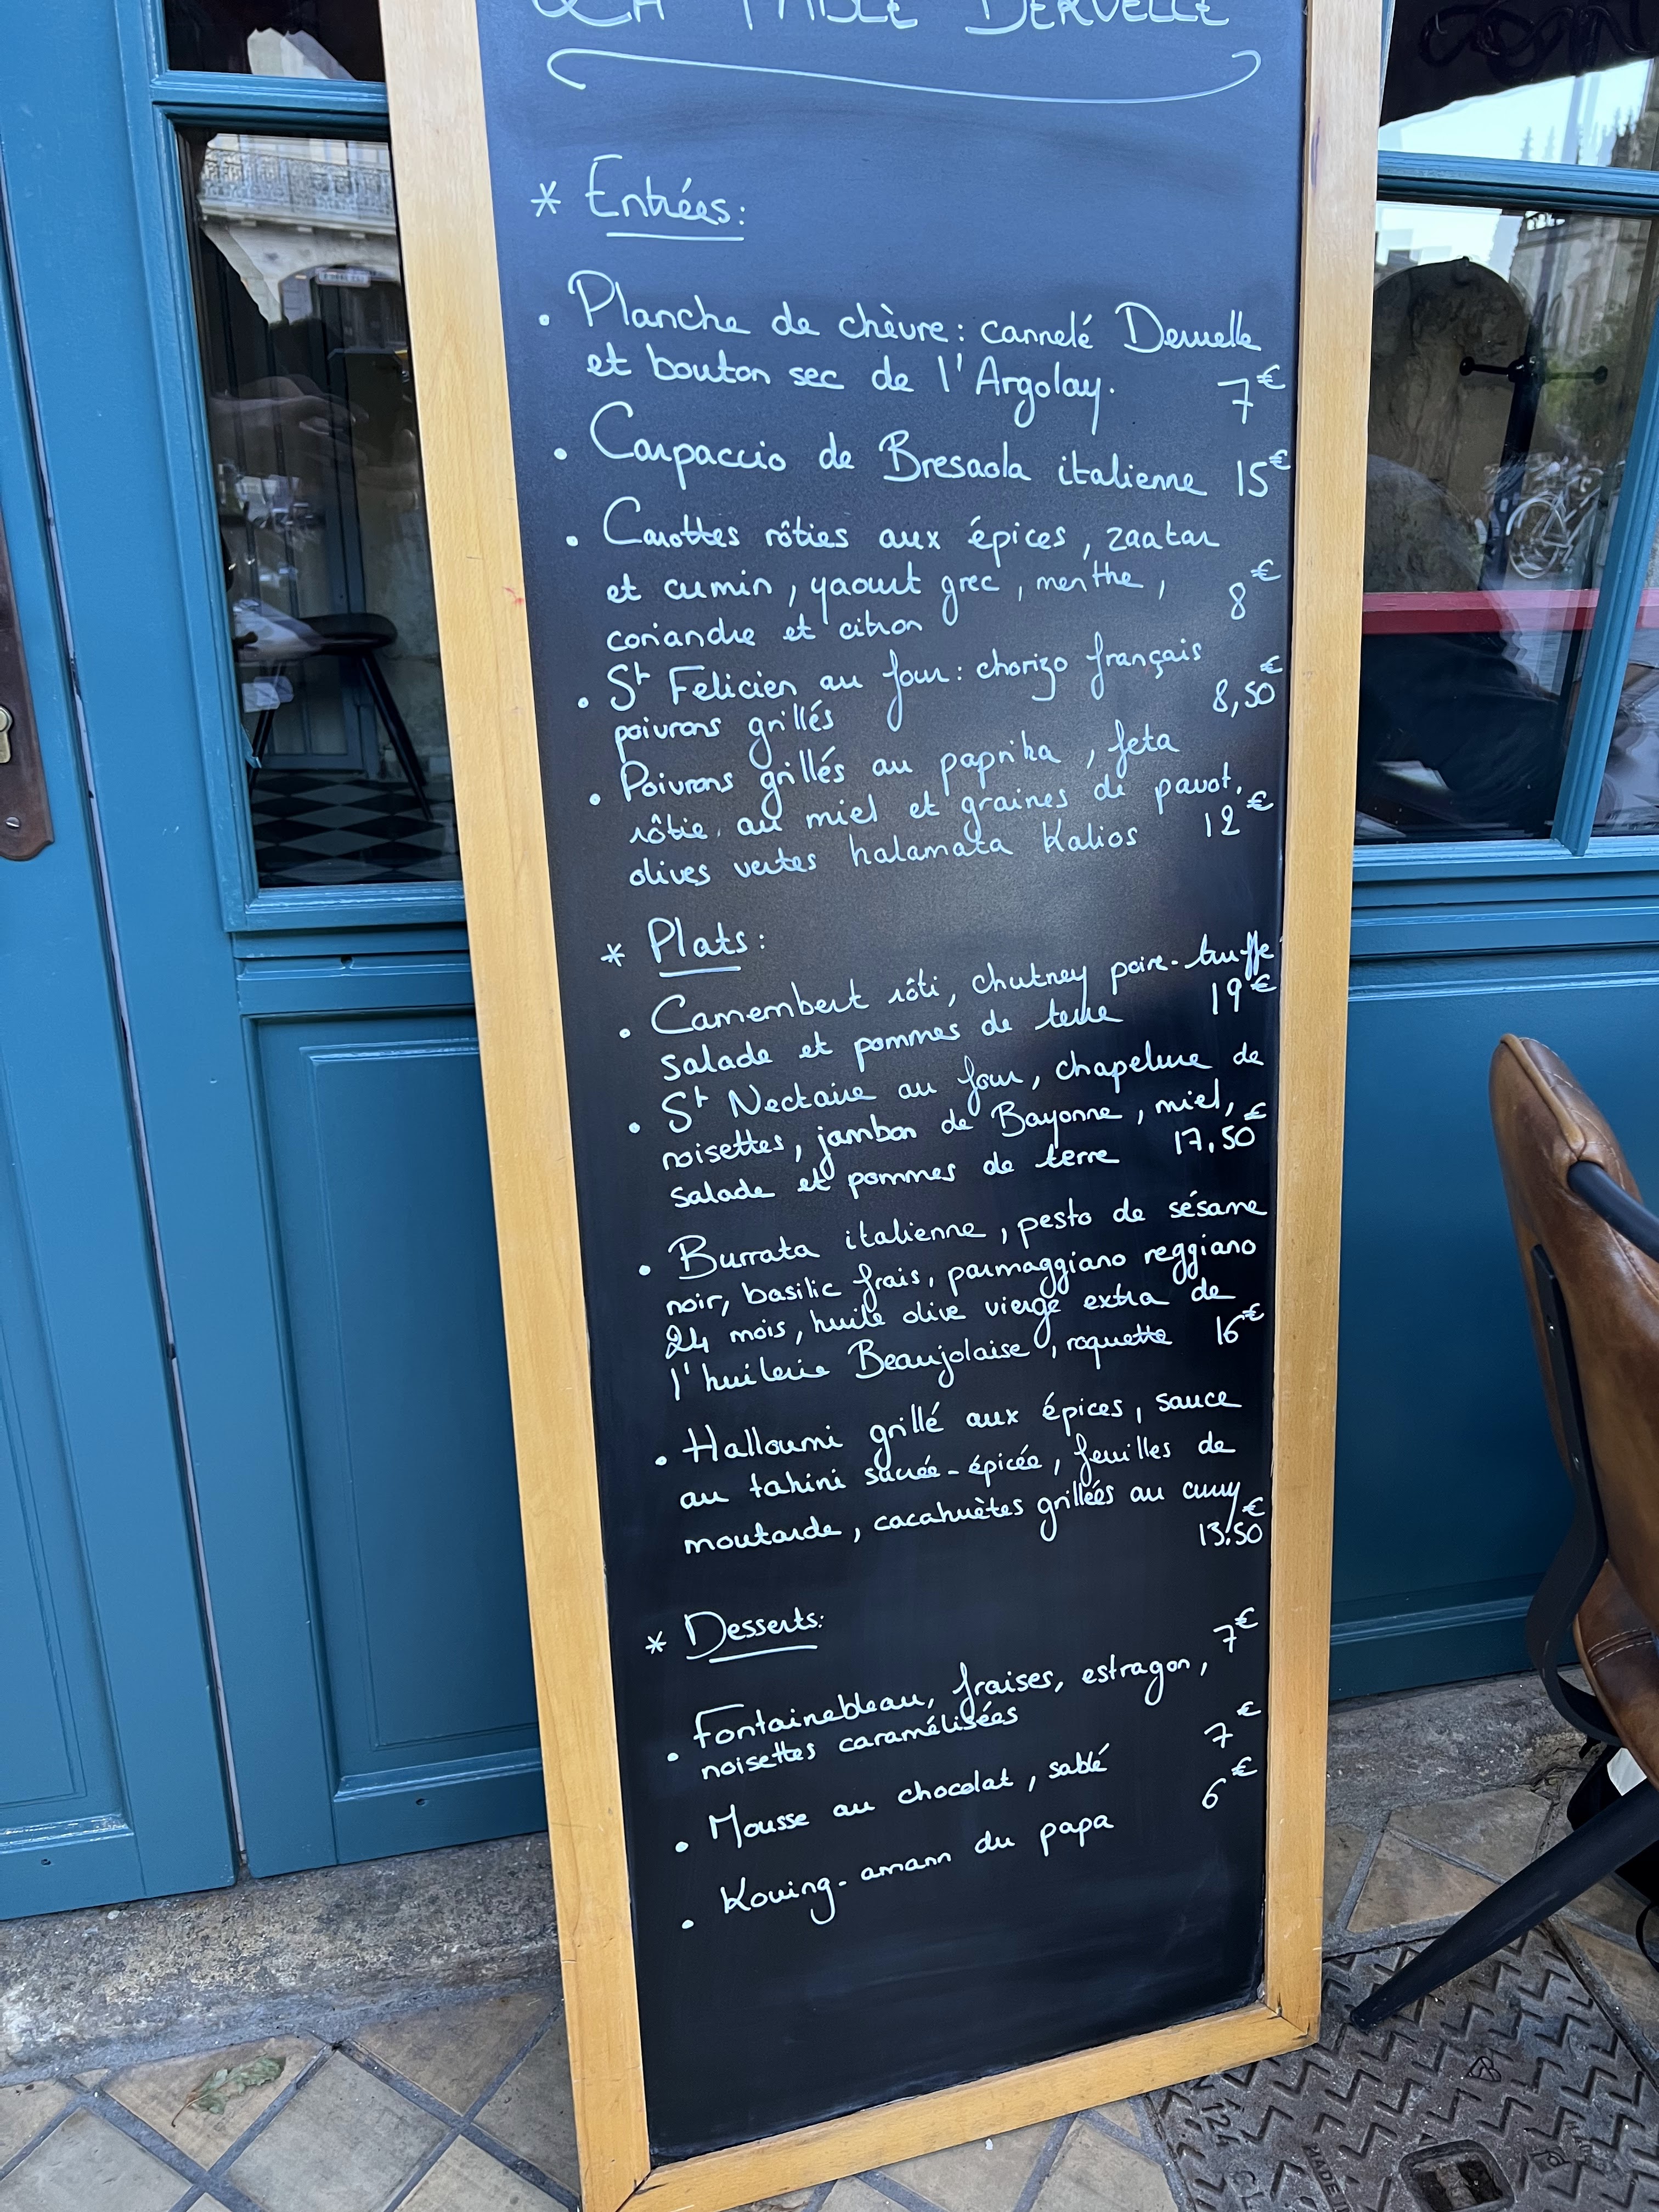 LA TABLE DERVELLE
* Entrées:
• Planche de chèvre: cannelé Dervelle
et bouton sec de l'Argolay. 7€
• Carpaccio de Bresaola italienne 15€
• Carottes rôties aux épices, zaatar
et cumin, yaourt grec, menthe,
coriandre et citron 8€
• St Felicien au four: chorizo français
poivrons grillés 8,50€
• Poivrons grillés au paprika, feta
rôtie au miel et graines de pavot,
olives vertes kalamata Kalios 12€
* Plats:
• Camembert rôti, chutney poire-truffe
salade et pommes de terre 19€
• St Nectaire au four, chapelure de
noisettes, jambon de Bayonne, miel,
salade et pommes de terre 17.50€
• Burrata italienne, pesto de sésame
noir, basilic frais, parmaggiano reggiano
24 mois, huile olive vierge extra de
l'huilerie Beaujolaise, roquette 16€
• Halloumi grillé aux épices, sauce
au tahini sucrée-épicée, feuilles de
moutarde, cacahuètes grillées au curry
13.50€
* Desserts:
• Fontainebleau, fraises, estragon, 7€
noisettes caramélisées
• Mousse au chocolat, sablé 7€
• Kouing-amann du papa 6€
124
MADE